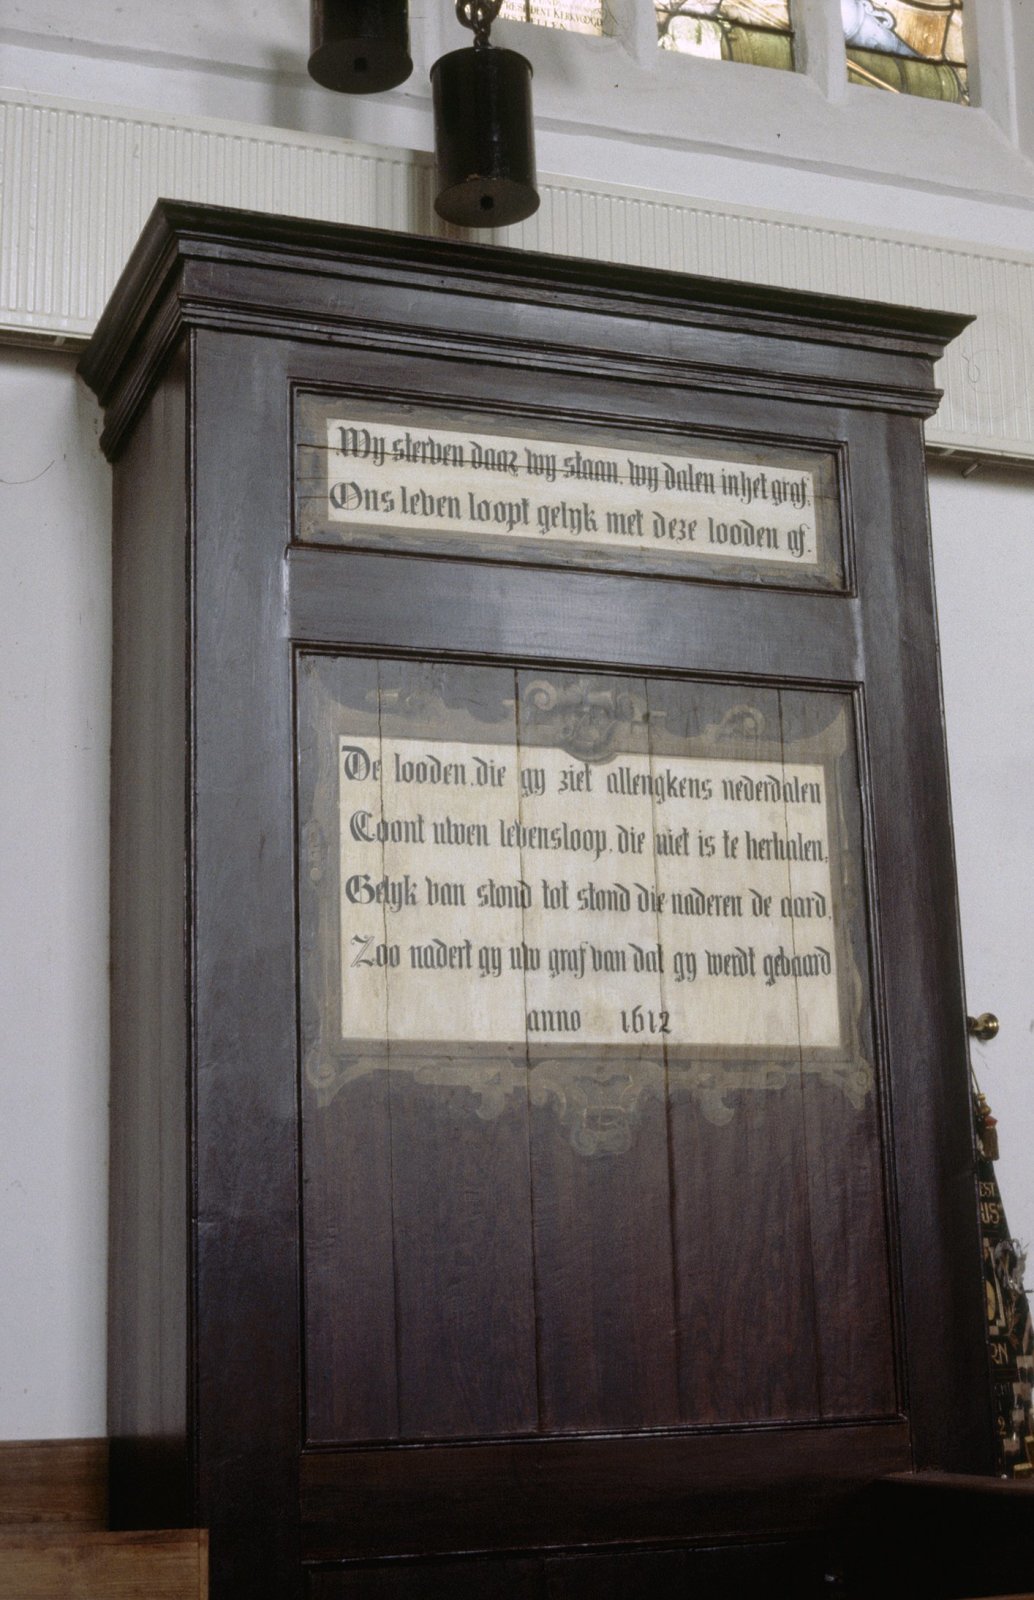 PRESIDENT KERKVOOGD
Wy sterven daar wy staan, wy dalen in het graf,
Ons leven loopt gelyk met deze looden af.
De looden, die gy ziet allengkens nederdalen
Toont uwen levensloop, die niet is te herhalen,
Gelyk van stond tot stond die naderen de aard,
Zoo nadert gy uw graf van dat gy werdt gebaard
anno 1612